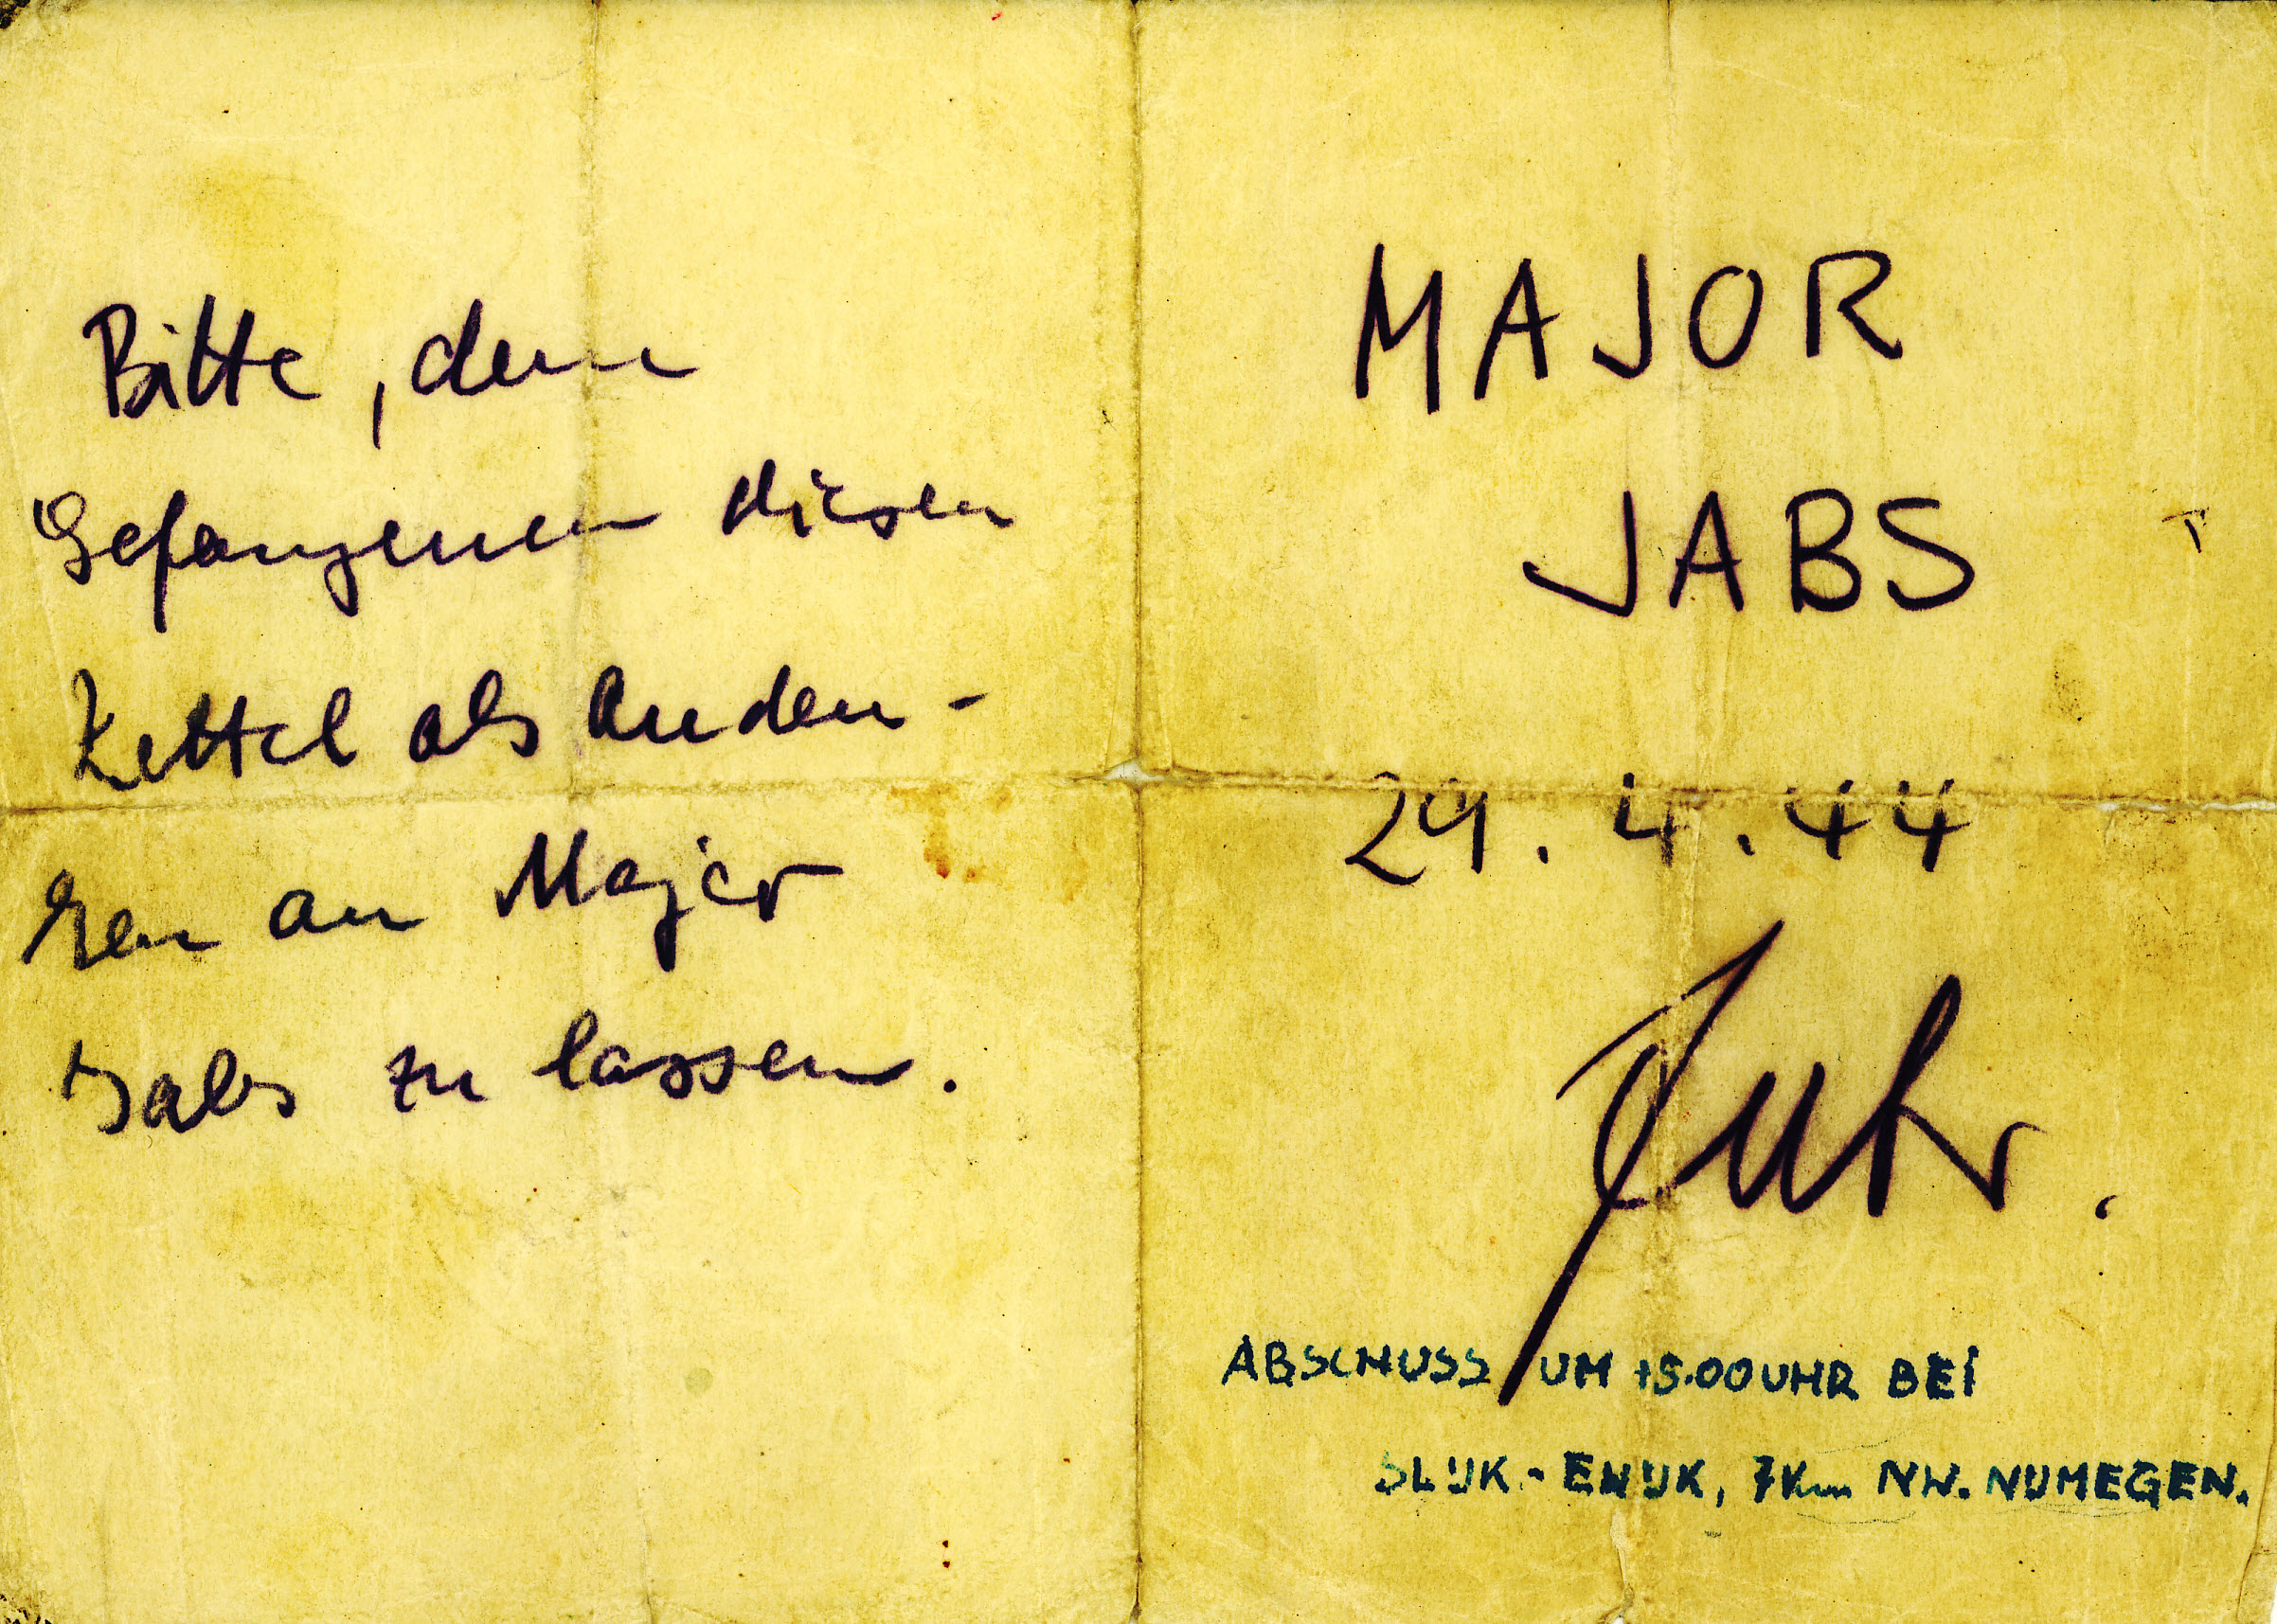 Bitte, dem
Gefangenen diesen
Zettel als Anden-
ken an Major
Jabs zu lassen.
MAJOR
JABS
29.4.44
Jabs.
ABSCHUSS UM 15.00 UHR BEI
SLIJK-EWIJK, 7 Km NW. NIJMEGEN.